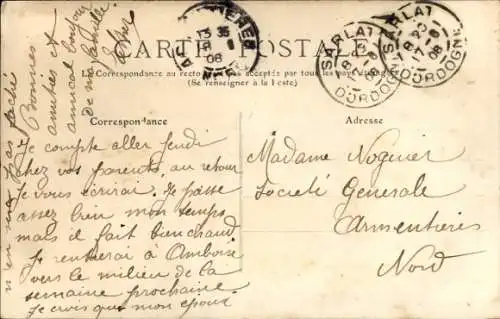 CARTE POSTALE
La Correspondance au recto n'est pas acceptée par tous les pays étrangers
(Se renseigner à la Poste)
Correspondance
Je compte aller Jeudi
chez vos parents, au retour
je vous écrirai. Je passe
assez bien mon temps
mais il fait bien chaud
Je rentrerai à Amboise
vers le milieu de la
semaine prochaine.
Je crois que mon époux
n'en sera pas fâché
Bonnes
amitiés et
amical bonjour
de ma famille
Adresse
Madame Noguier
Société Générale
Armentières
Nord
SARLAT
DORDOGNE
SARLAT
DORDOGNE